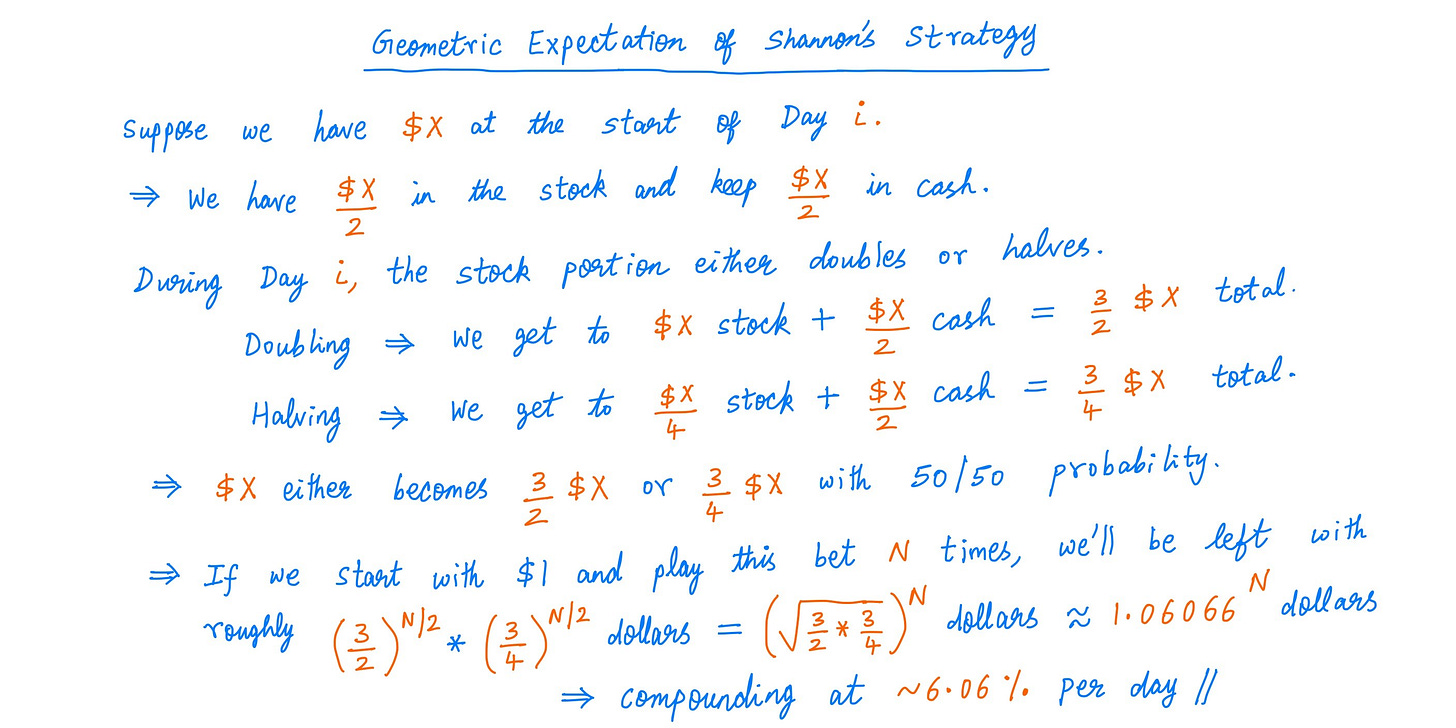 Geometric Expectation of Shannon's Strategy
Suppose we have $X at the start of Day i.
⇒ We have $X/2 in the stock and keep $X/2 in cash.
During Day i, the stock portion either doubles or halves.
Doubling ⇒ We get to $X stock + $X/2 cash = 3/2 $X total.
Halving ⇒ We get to $X/4 stock + $X/2 cash = 3/4 $X total.
⇒ $X either becomes 3/2 $X or 3/4 $X with 50/50 probability.
⇒ If we start with $1 and play this bet N times, we'll be left with
roughly (3/2)^N/2 * (3/4)^N/2 dollars = (√(3/2 * 3/4))^N dollars ≈ 1.06066^N dollars
⇒ compounding at ~6.06 % per day //